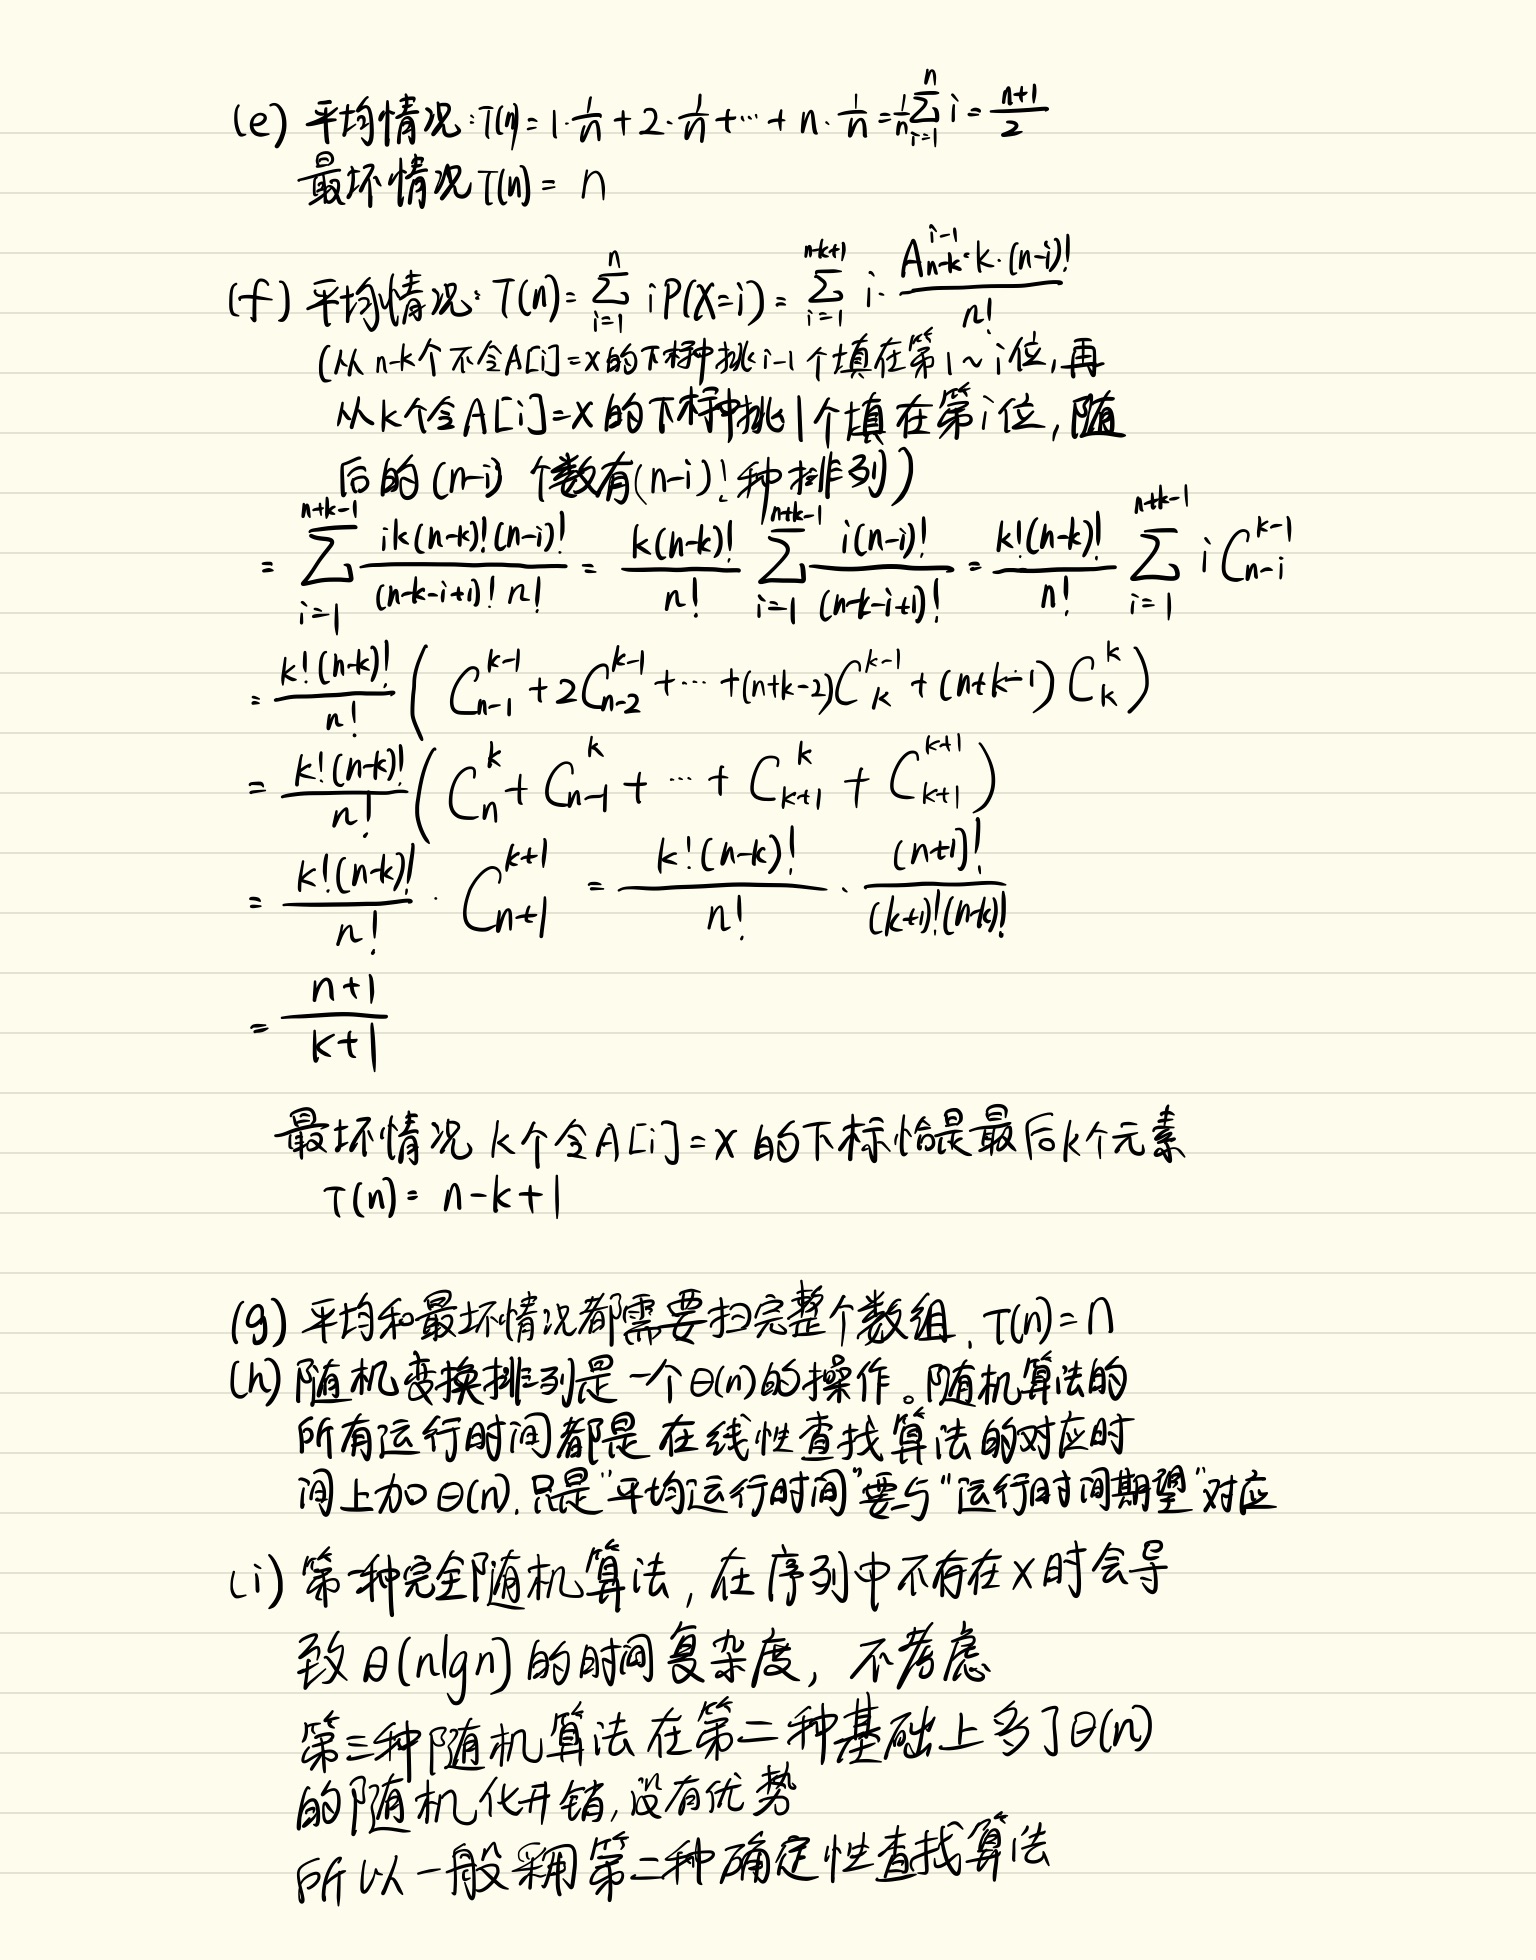 (e) 平均情况: T(n) = 1·1/n + 2·1/n + ··· + n·1/n = 1/n ∑_{i=1}^{n} i = (n+1)/2
最坏情况 T(n) = n
(f) 平均情况: T(n) = ∑_{i=1}^{n} i P(X=i) = ∑_{i=1}^{n-k+1} i · (A_{n-k}^{i-1}·k·(n-i)!)/n!
(从 n-k个不令A[i]=x的下标中挑i-1个填在第1~i位,再
从k个令A[i]=x的下标中挑1个填在第i位,随
后的(n-i)个数有(n-i)!种排列)
= ∑_{i=1}^{n+k-1} (ik(n-k)!(n-i)!)/((n-k-i+1)! n!) = (k(n-k)!)/n! ∑_{i=1}^{n+k-1} (i(n-i)!)/((n-k-i+1)!) = (k!(n-k)!)/n! ∑_{i=1}^{n+k-1} i C_{n-i}^{k-1}
= (k!(n-k)!)/n! ( C_{n-1}^{k-1} + 2C_{n-2}^{k-1} + ··· + (n+k-2)C_{k}^{k-1} + (n+k-1) C_{k}^{k} )
= (k!(n-k)!)/n! ( C_{n}^{k} + C_{n-1}^{k} + ··· + C_{k+1}^{k} + C_{k+1}^{k+1} )
= (k!(n-k)!)/n! · C_{n+1}^{k+1} = (k!(n-k)!)/n! · (n+1)!/((k+1)!(n-k)!)
= (n+1)/(k+1)
最坏情况 k个令A[i]=x的下标恰是最后k个元素
T(n) = n-k+1
(g) 平均和最坏情况都需要扫完整个数组, T(n)=n
(h) 随机变换排列是一个θ(n)的操作。随机算法的
所有运行时间都是在线性查找算法的对应时
间上加θ(n).只是"平均运行时间"要与"运行时间期望"对应
(i) 第一种完全随机算法,在序列中不存在x时会导
致θ(nlgn)的时间复杂度,不考虑
第三种随机算法在第二种基础上多了θ(n)
的随机化开销,没有优势
所以一般采用第二种确定性查找算法